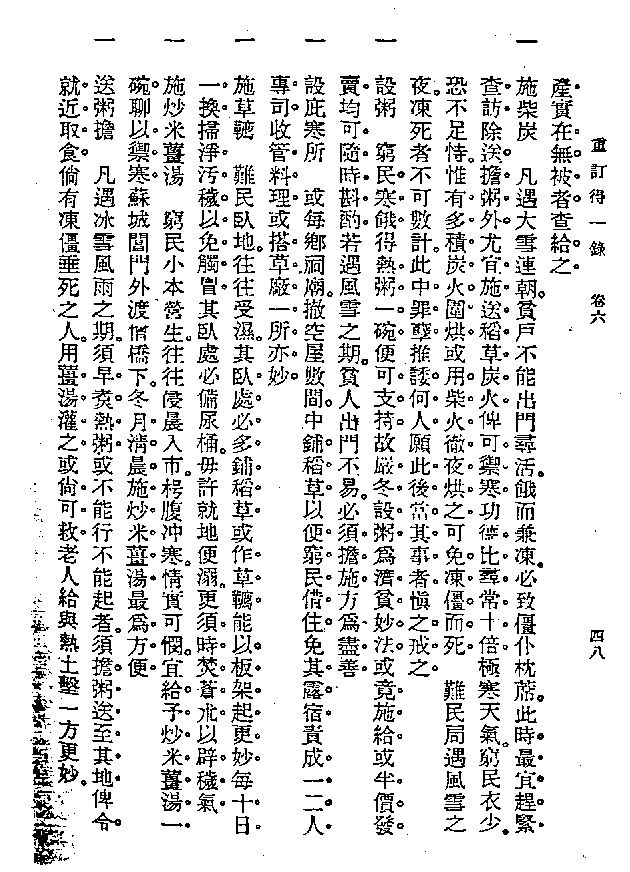 重訂得一錄　卷六　四八
產實在無被者查給之
一　施柴炭　凡遇大雪連朝。貧戶不能出門尋活。餓而兼凍。必致僵仆枕藉。此時最宜趕緊
查訪除送擔粥外尤宜施送稻草炭火俾可禦寒功德比尋常十倍極寒天氣。窮民衣少。
恐不足恃。惟有多積炭火圍烘或用柴火徹夜烘之可免凍僵而死　難民局遇風雪之
夜。凍死者不可數計。此中罪孽推諉何人願此後當其事者愼之戒之
一　設粥　窮民寒餓得熱粥一碗便可支持故嚴冬設粥爲濟貧妙法或竟施給或半價發
賣均可隨時斟酌若遇風雪之期貧人出門不易。必須擔施方爲盡善
一　設庇寒所　或每鄉祠廟。撤空屋數間。中鋪稻草以便窮民借住免其露宿責成一二人
專司收管料理或搭草廠一所亦妙
一　施草薦　難民臥地。往往受濕。其臥處必多鋪稻草或作草薦能以板架起更妙每十日
一換掃淨汚穢以免觸冒其臥處必備尿桶。毋許就地便溺。更須時焚蒼朮以辟穢氣
一　施炒米薑湯　窮民小本營生。往往侵晨入市。枵腹冲寒。情實可憫。宜給予炒米薑湯一
碗聊以禦寒蘇城閶門外渡僧橋下。冬月淸晨施炒米薑湯最爲方便
一　送粥擔　凡遇冰雪風雨之期。須早煑熱粥或不能行不能起者須擔粥送至其地俾令
就近取食倘有凍僵垂死之人。用薑湯灌之或尙可救老人給與熱土墼一方更妙。